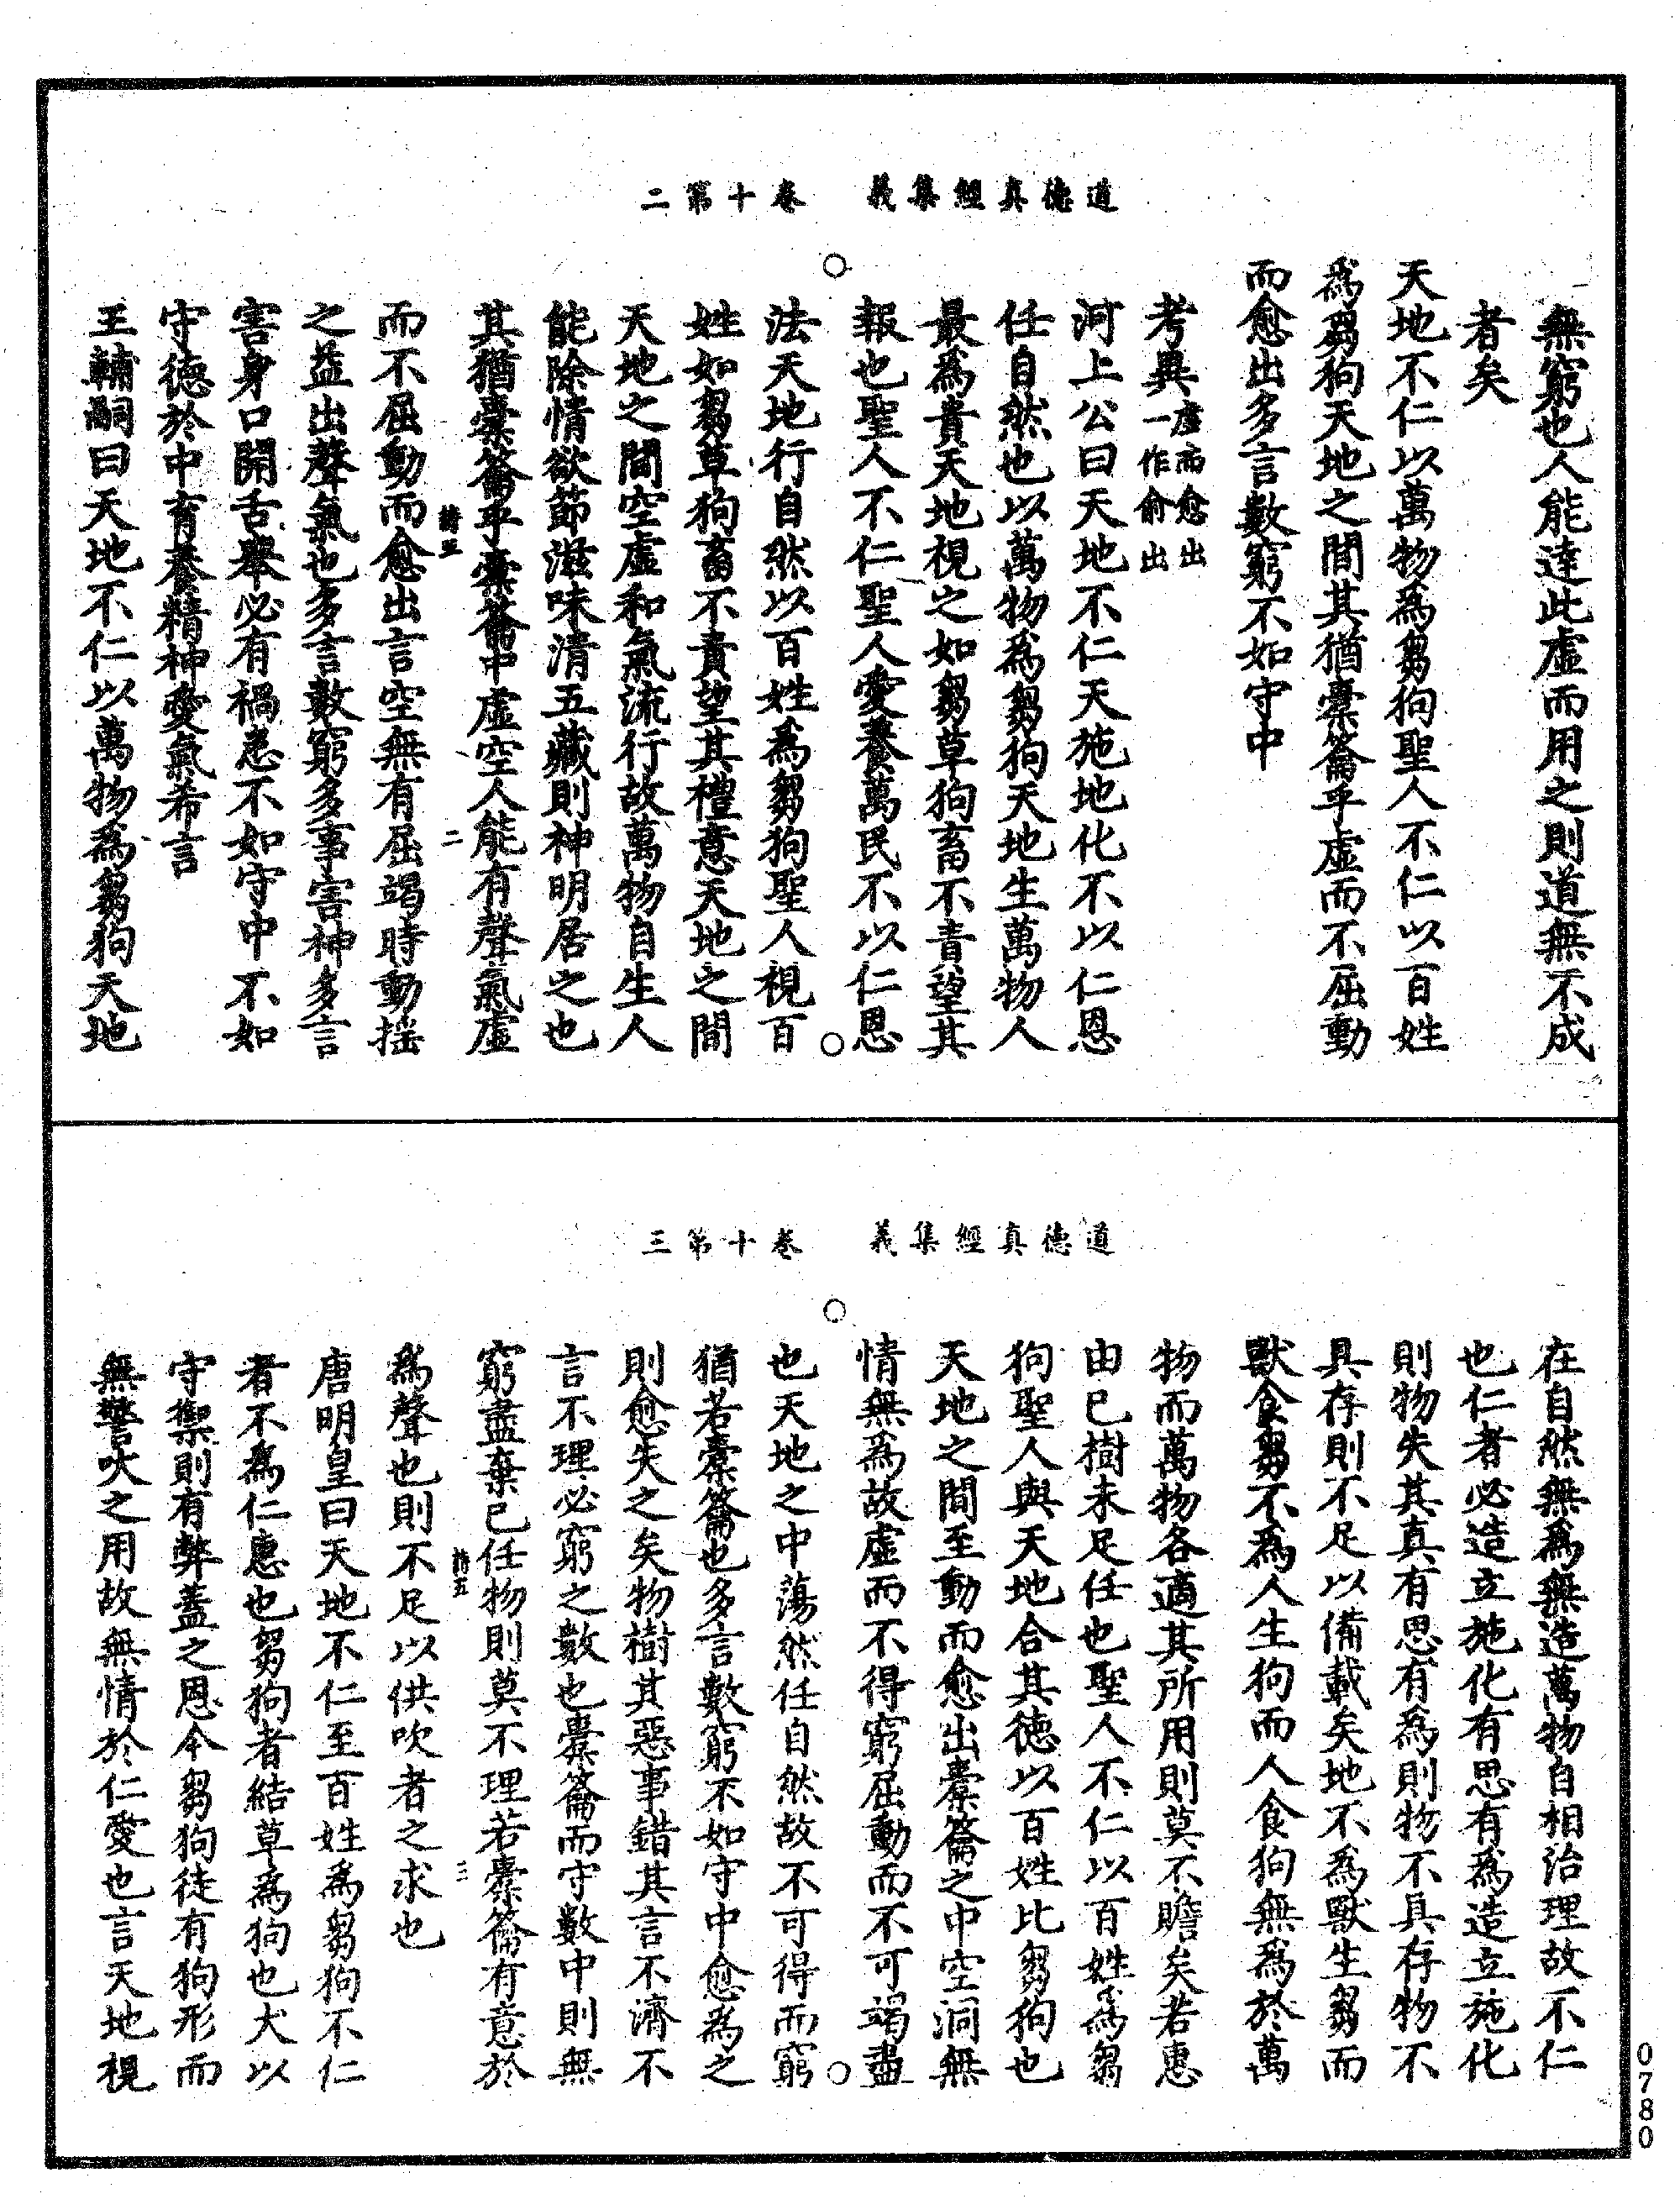 道德真經集義　卷十第二
無窮也人能達此虛而用之則道無不成
者矣
天地不仁以萬物為芻狗聖人不仁以百姓
為芻狗天地之間其猶橐籥乎虛而不屈動
而愈出多言數窮不如守中
考異虛而愈出一作俞出
河上公曰天地不仁天施地化不以仁恩
任自然也以萬物為芻狗天地生萬物人
最為貴天地視之如芻草狗畜不責望其
報也聖人不仁聖人愛養萬民不以仁恩
法天地行自然以百姓為芻狗聖人視百
姓如芻草狗畜不責望其禮意天地之間
天地之間空虛和氣流行故萬物自生人
能除情欲節滋味清五藏則神明居之也
其猶橐籥乎橐籥中虛空人能有聲氣虛
二
而不屈動而愈出言空無有屈竭時動搖
之益出聲氣也多言數窮多事害神多言
害身口開舌舉必有禍患不如守中不如
守德於中育養精神愛氣希言
王輔嗣曰天地不仁以萬物為芻狗天地
道德真經集義　卷十第三
在自然無為無造萬物自相治理故不仁
也仁者必造立施化有思有為造立施化
則物失其真有思有為則物不具存物不
具存則不足以備載矣地不為獸生芻而
獸食芻不為人生狗而人食狗無為於萬
物而萬物各適其所用則莫不贍矣若惠
由已樹未足任也聖人不仁以百姓為芻
狗聖人與天地合其德以百姓比芻狗也
天地之間至動而愈出橐籥之中空洞無
情無為故虛而不得窮屈動而不可竭盡
也天地之中蕩然任自然故不可得而窮
猶若橐籥也多言數窮不如守中愈為之
則愈失之矣物樹其惡事錯其言不濟不
言不理必窮之數也橐籥而守數中則無
窮盡棄已任物則莫不理若橐籥有意於
三
為聲也則不足以供吹者之求也
唐明皇曰天地不仁至百姓為芻狗不仁
者不為仁惠也芻狗者結草為狗也犬以
守禦則有弊蓋之恩今芻狗徒有狗形而
無警吠之用故無情於仁愛也言天地視
0780